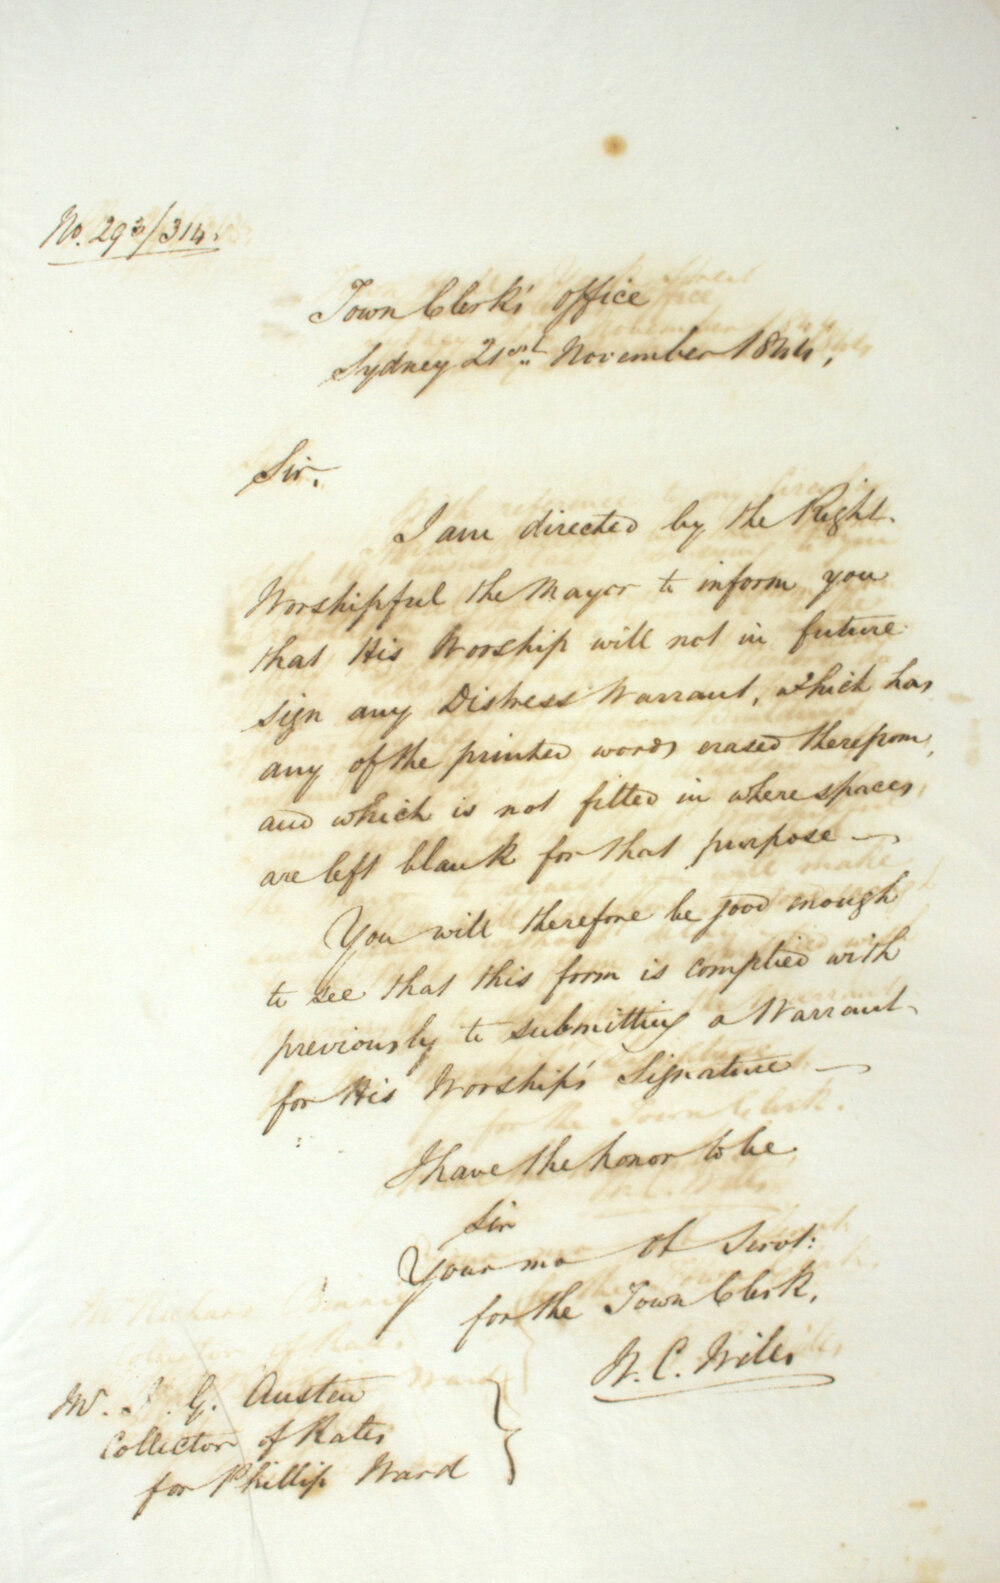 No. 293/314.
Town Clerk's Office
Sydney 21st November 1844,
Sir,
I am directed by the Right
Worshipful the Mayor to inform you
that His Worship will not in future
sign any Distress Warrant, which has
any of the printed words erased therefrom,
and which is not filled in where spaces
are left blank for that purpose —
You will therefore be good enough
to see that this form is complied with
previously to submitting a Warrant
for His Worship's Signature —
I have the honor to be
Sir
Your mo Ob Servt:
for the Town Clerk,
W. C. Wills
Mr. J. G. Austen
Collector of Rates
for Phillip Ward